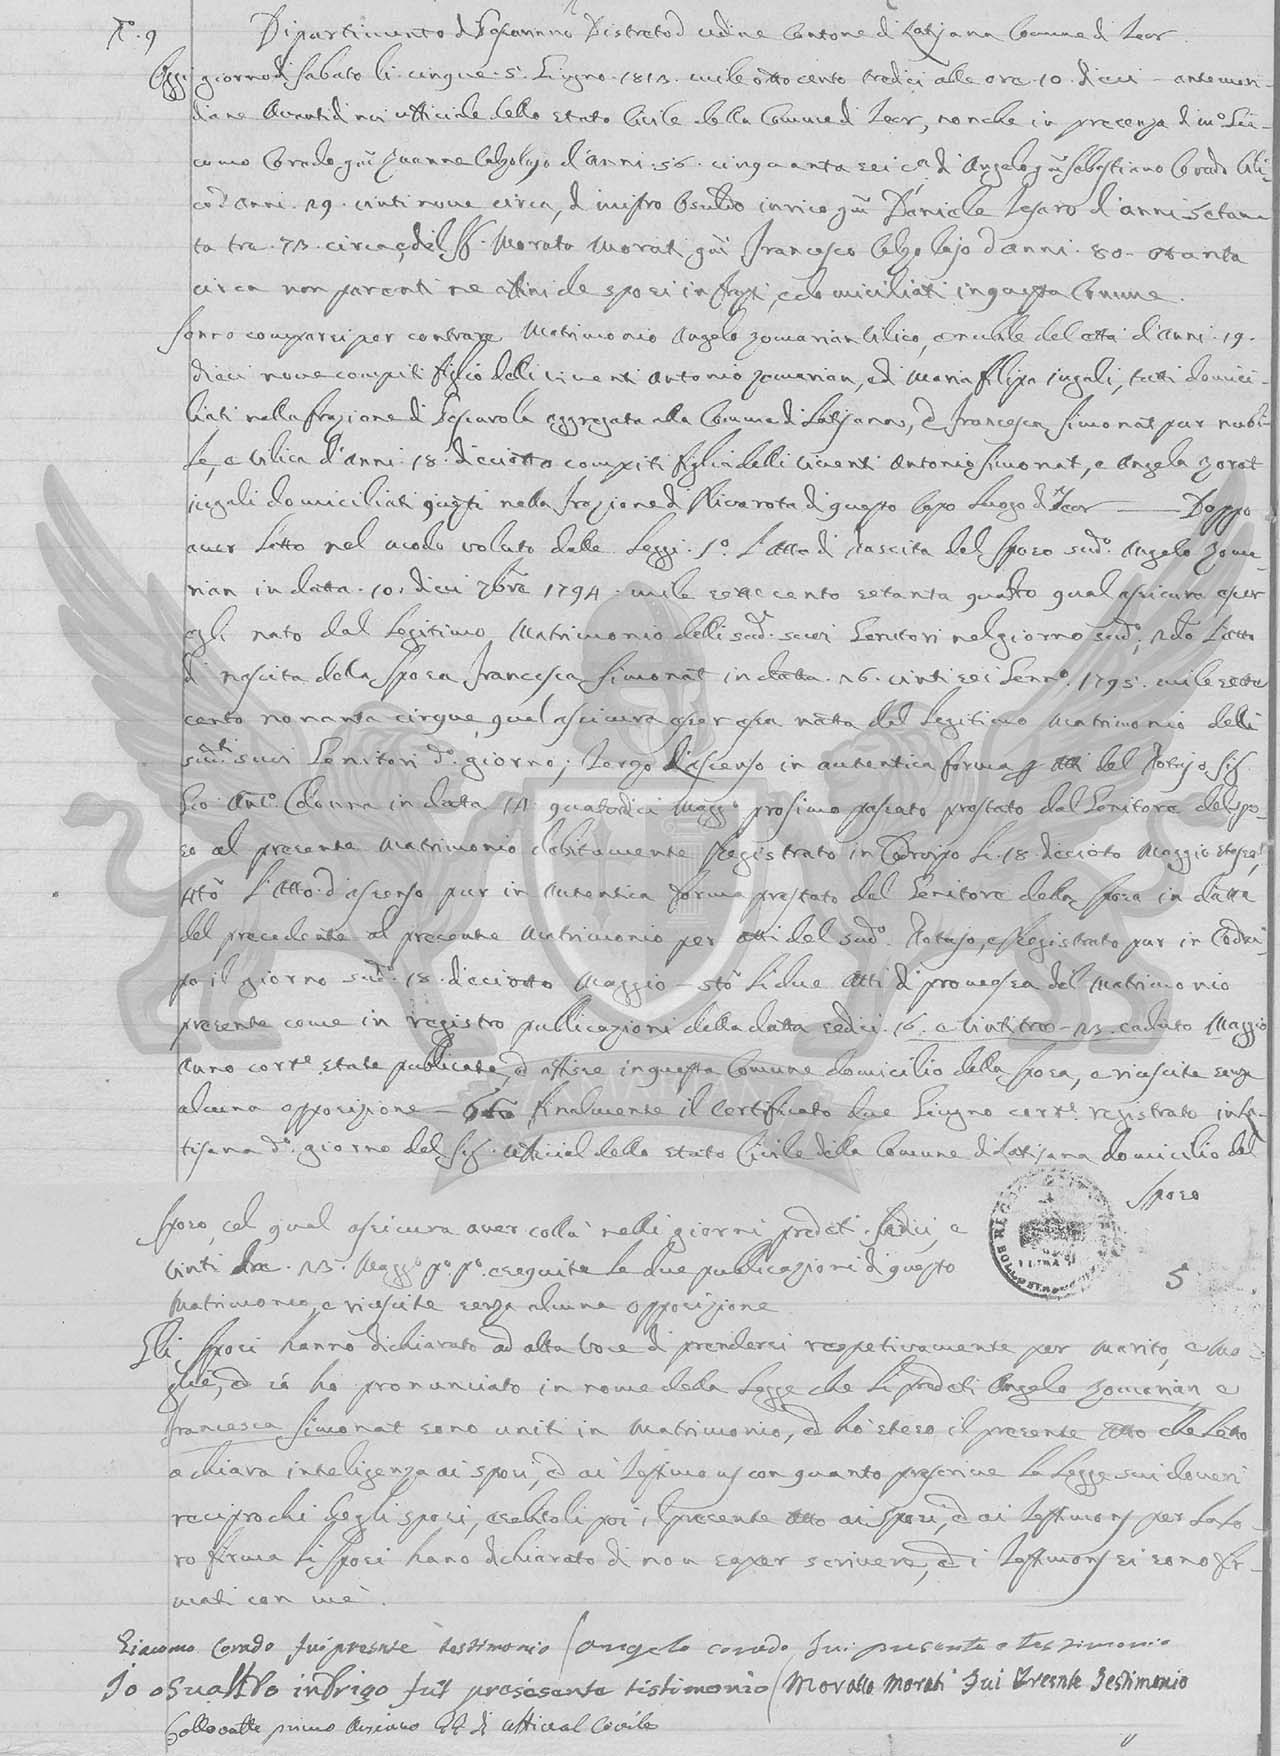 N.° 9 Dipartimento di Passariano Distreto d'Udine Cantone di Latisana Comune di Teor
Oggi giorno di Sabato li cinque 5 Giugno 1813 mile otto cento tredici alle ore 10 dieci antemeri-
diane Avanti di noi ufficiale dello Stato Civile della Comune di Teor, nonche in presenza di
como Corado qm Zuanne d'anni 56 cinquanta sei ca di Angelo qm Sebastiano Corado
d'anni 29 vinti nove circa, di mistro Osualdo inrico qm Daniele Tesaro d'anni Setan-
ta tre 73 circa, e del Morato Morati qm Francesco d'anni 80 otanta
circa non parenti ne affini de sposi infrati, e domiciliati in questa Comune.
Sonno comparsi per contrare Matrimonio Angelo Zamarian Vilico, e nubile del etta d'anni 19
dieci nove compiti figlio delli viventi Antonio Zamarian, ed Maria Filipa jugali, tutti domici-
liati nella frazione di Pescarola aggregata alla Comune di Latisana, e Francesca Simonat pur nubi-
le, e Vilica d'anni 18 diciotto compiti figlia delli viventi Antonio Simonat, e Angela Zorat
jugali domiciliati questi nella frazione di Rivarota di questo Capo Luogo di Teor —— Doppo
aver Letto nel modo voluto dalle Leggi 1.° L'Atto di nascita del sposo sud.° Angelo Zama-
rian in datta 10 dieci 7bre 1794 mile sette cento setanta quatro qual asicura esser
egli nato dal Legitimo Matrimonio delli sud. suoi Genitori nel giorno sud.°; 2do L'atto
di nascita della Sposa Francesca Simonat in datta 26 vinti sei Genn.° 1795 mile sette
cento nonanta cinque, qual asicura esser esa natta del Legitimo Matrimonio delli
sud.ti suoi Genitori d.° giorno; Terzo L'ascenso in autentica forma Atti del Notajo Sig.
Gio: Ant.° Colonna in datta 14 quatordici Magg.° prosimo pasato prestato dal Genitore del spo-
so al presente Matrimonio debitamente Registrato in Codroipo li 18 diciotto Maggio
4to L'Atto d'ascenso pur in Autentica forma prestato dal Genitore della Sposa in datta
del precedente al presente Matrimonio per Atti del sud.° Notajo, e Registrato pur in Codroi-
po il giorno sud.° 18 diciotto Maggio – 5to Li due Atti di promessa del Matrimonio
presente come in registro publicazioni della datta sedici 16 e vinti tre – 23 caduto Maggio
Anno corr.e state publicate, ed affisse in questa Comune domicilio della Sposa, e riuscite senza
alcuna opposizione – 6to finalmente il Certificato due Giugno corr.e registrato in La-
tisana d.° giorno del Sig. Ufficial dello Stato Civile della Comune di Latisana domicilio del
Sposo
Sposo, col qual asicura aver colla nelli giorni predeti Sedici, e
Vinti tre 23 Magg.° p.° p.° eseguite le due publicazioni di questo
Matrimonio, e riuscite senza alcuna opposizione
Gli Sposi hanno dichiarato ad alta voce di prendersi respetivamente per Marito, e Mo-
glie, ed io ho pronunciato in nome della Legge che li predeti Angelo Zamarian e
Francesca Simonat sono uniti in Matrimonio, ed ho steso il presente Atto che Letto
a chiara inteligenza ai sposi, ed ai Testimonj con quanto prescrive la Legge sui doveri
reciprochi degli sposi, esebitoli poi il presente Atto ai sposi, ed ai Testimonj per la lo-
ro firma li Sposi hano dichiarato di non saper scrivere, ed i Testimonj si sono fir-
mati con me.
Giacomo Corado fui presente testimonio / Angelo corado fui presente e testimonio
Io osualdo indrigo fui presesente tistimonio / Moratto Morati Fui Presente Testimonio
primo Anziano Ed di Ufficial Civile
5